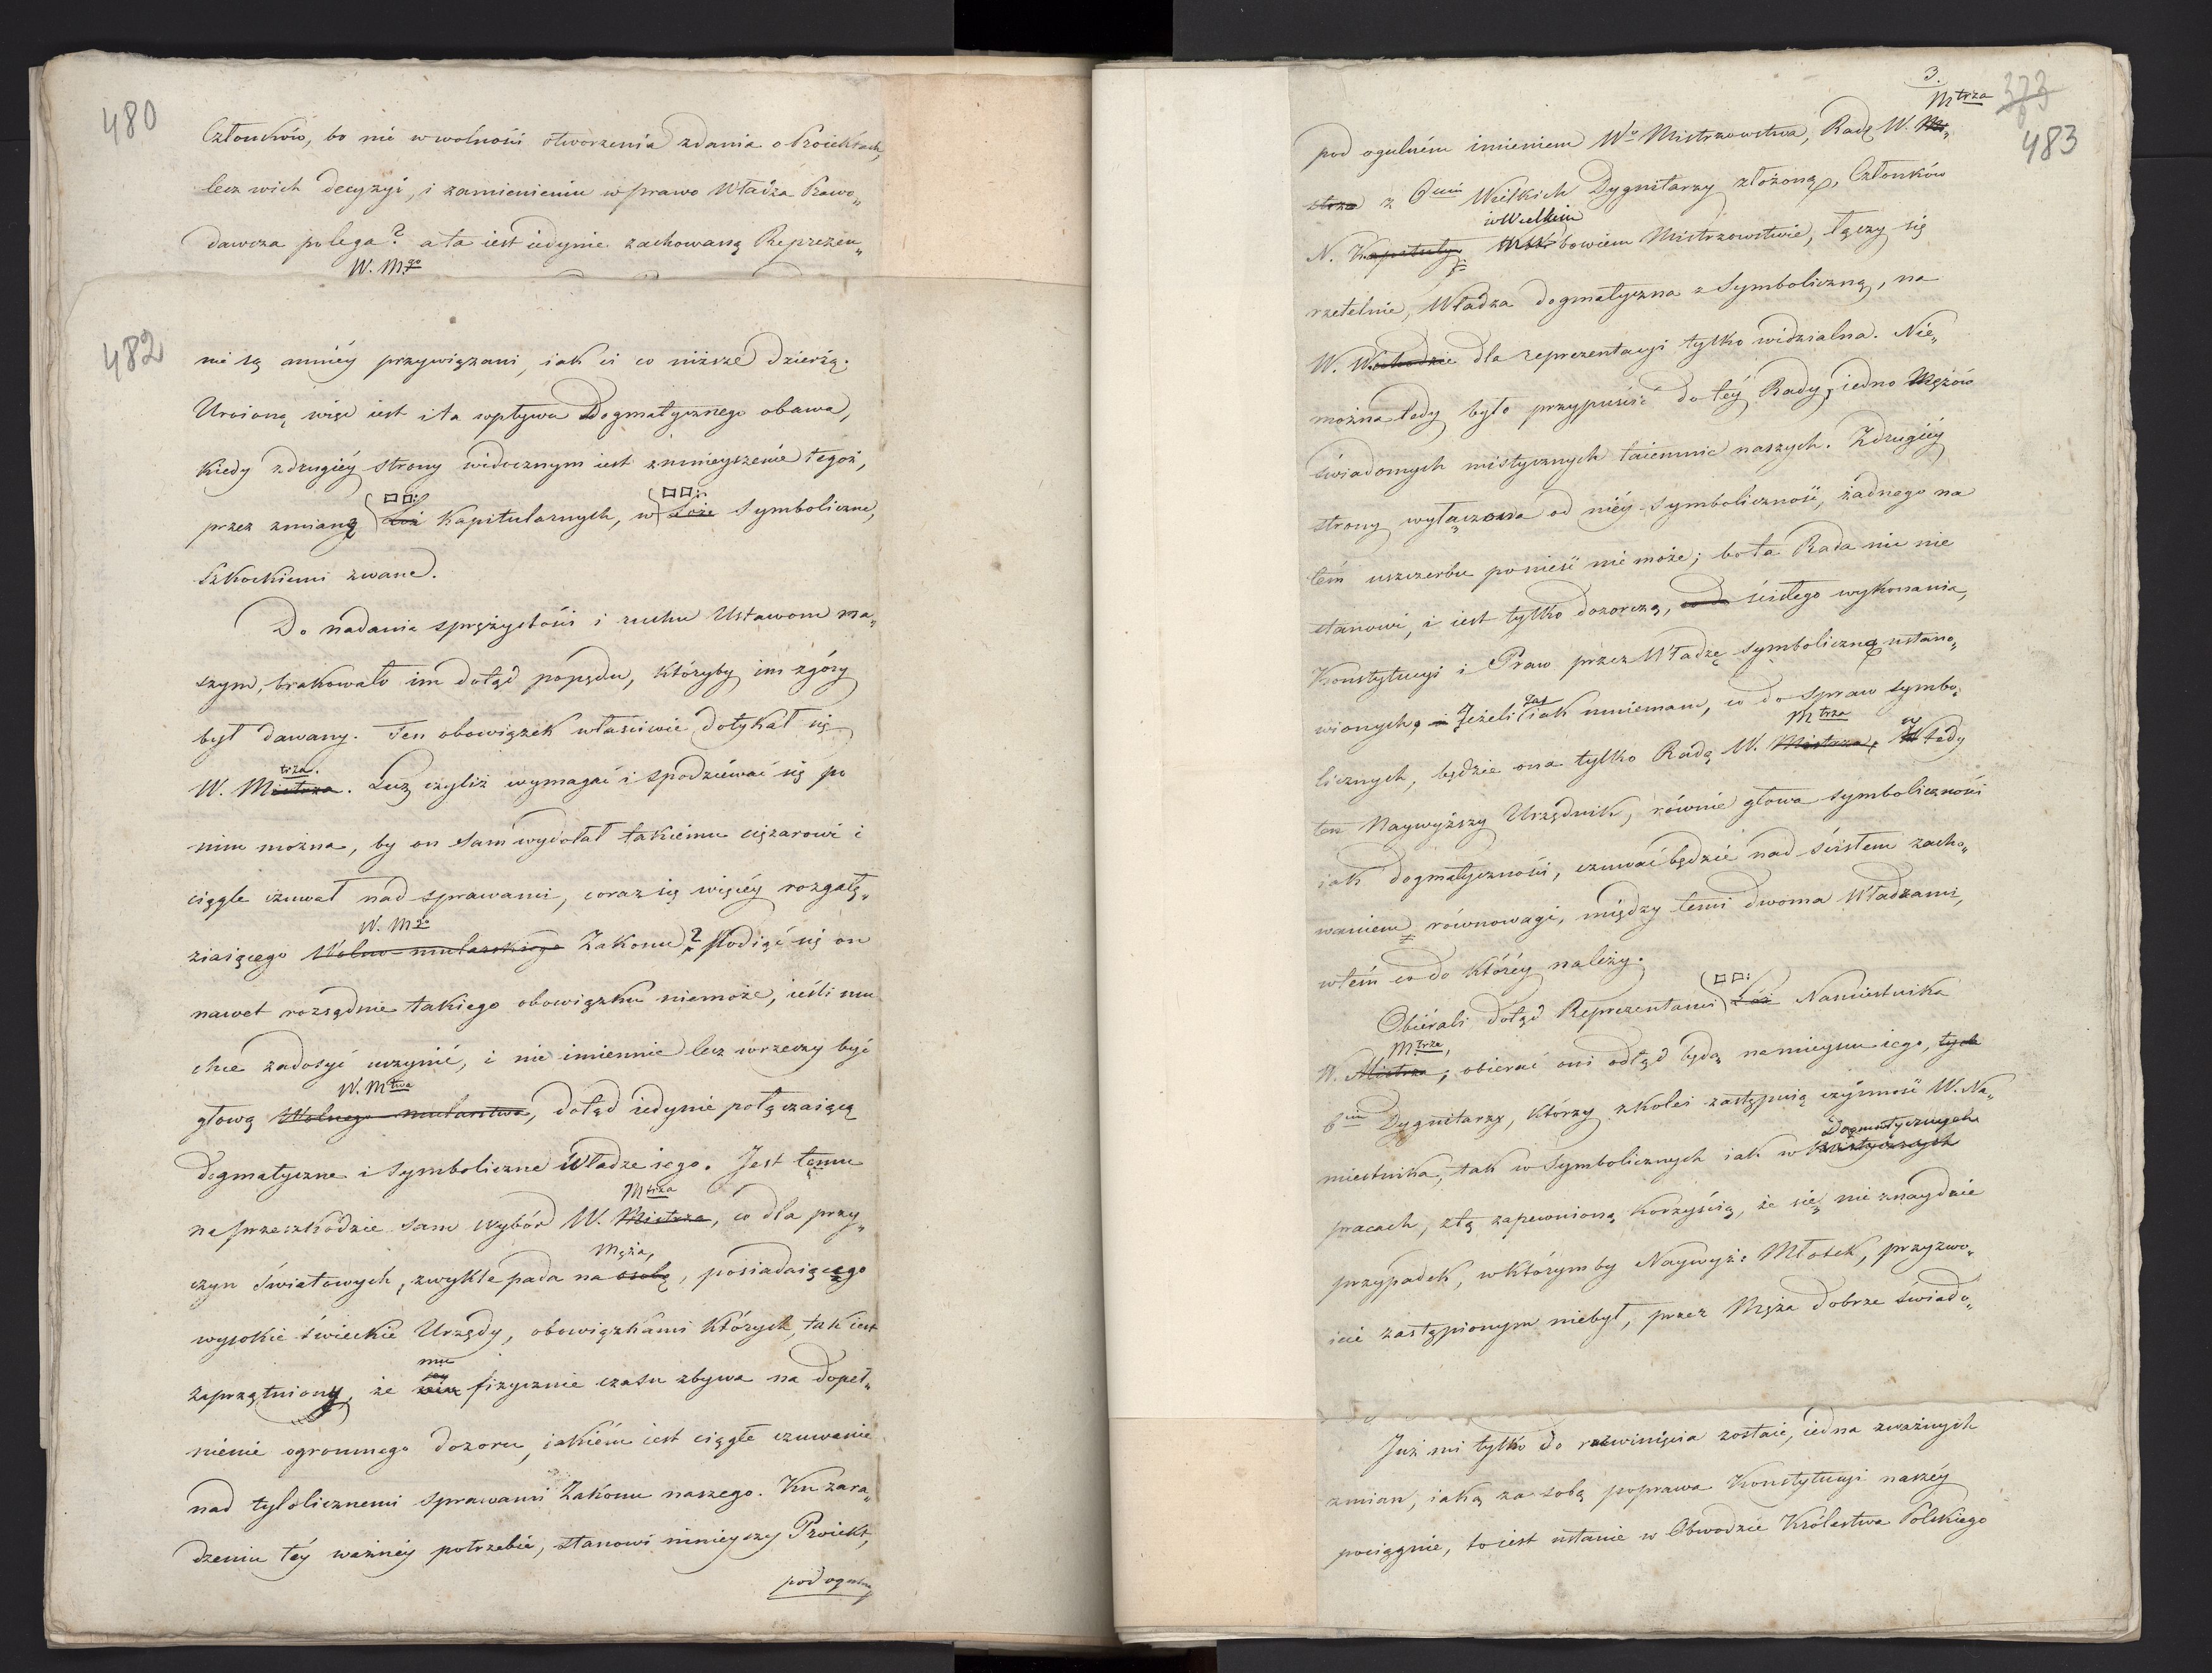 480
Członków, bo nie w wolności otworzenia zdania o Proiektach,
lecz w ich decyzyi, i zamienieniu w prawo Władza Prawo„
dawcza polega? a ta iest iedynie zachowaną Reprezen„
W. M.go
482
nie są mniéy przywiązani, iak ci co niższe dzierżą.
Uroioną więc iest i ta wpływu Dogmatycznego obawa,
kiedy z drugiéy strony widocznym iest zmnieyszenie tegoż,
□□:
□□:
przez zmianę Lóż Kapitularnych, w Loże Symboliczne,
Szkockiemi zwane.
Do nadania sprężystości i ruchu Ustawom na„
szym, brakowało im dotąd popędu, któryby im z góry
był dawany. Ten obowiązek właściwie dotykał się
trza.
W. Mistrza. Lecz czyliż wymagać i spodziéwać się po
nim można, by on sam wydołał takiému ciężarowi i
ciągle czuwał nad sprawami, coraz się więcéy rozgałę„
W. Mgo
ziaiącego Wolno-mularskiego Zakonu? Podiąć się on
nawet rozsądnie takiego obowiązku niemoże, ieśli mu
chce zadosyć uczynić, i nie imiennie lecz w rzeczy być
W. Mtwa
głową Wolnego mularstwa, dotąd iedynie połączaiącą
dogmatyczne i Symboliczne Władze iego. Jest temu
Mtrza
na przeszkodzie sam wybór W. Mistrza, co dla przy„
Męża,
czyn światowych, zwykle pada na osobę, posiadaiącego
wysokie świeckie Urzędy, obowiązkami których, tak iest
mu
zaprzątniony, że fizycznie czasu zbywa na dopeł„
nienie ogromnego dozoru, jakiém iest ciągłe czuwanie
nad tylolicznemi sprawami Zakonu naszego. Ku zara„
dzeniu téy ważnéy potrzebie, stanowi ninieyszy Proiekt,
pod ogulné
3.
373
483
Mtrza
pod ogulném imieniem Wo Mistrzowstwa, Radę W. Mi„
strza z 6ciu Wielkich Dygnitarzy złożoną, Członków
w Wielkim
N. Kapituły. bowiem Mistrzowstwie, łączy się
rzetelnie, Władza dogmatyczna z Symboliczną, na
W. Wschodzie dla reprezentacyi tylko widzialna. Nie„
można tedy było przypuścić do téy Rady, iedno Mężów
świadomych mistycznych taiemnic naszych. Z drugiéy
strony wyłączona od niéy Symboliczność, żadnego na
tém uszczerbu ponieść nie może; bo ta Rada nic nie
stanowi, i iest tylko dozorczą, ścisłego wykonania,
Konstytucyi i Praw przez Władzę Symboliczną ustano„
zaś
wionych, Jeżeli iak mniemam, co do spraw Symbo„
Mtrza
w
licznych, będzie ona tylko Radą W. Mistrza, tedy
ten Naywyższy Urzędnik, równie głowa Symboliczności
jak dogmatyczności, czuwać będzie nad ścisłem zacho„
waniem równowagi, między temi dwoma Władzami,
w tém co do któréy należy.
□□:
Obiérali dotąd Reprezentanci Lóż Namiestnika
Mtrza,
W. Mistrza; obierać oni odtąd będą na mieysce iego, tych
6ciu Dygnitarzy, którzy z kolei zastępuią czynność W. Na„
Dogmatycznych
miestnika, tak w Symbolicznych iak w Mistycznych
pracach, z tą zapewnioną korzyścią, że się nie znaydzie
przypadek, w którym by Naywyż: Młotek, przyzwo„
icie zastąpionym niebył, przez Męża dobrze świado„
Już mi tylko do rozwinięcia zostaie, iedna z ważnych
zmian, iaką za sobą poprawa Konstytucyi naszéy
pociągnie, to iest ustanie w Obwodzie Królestwa Polskiego